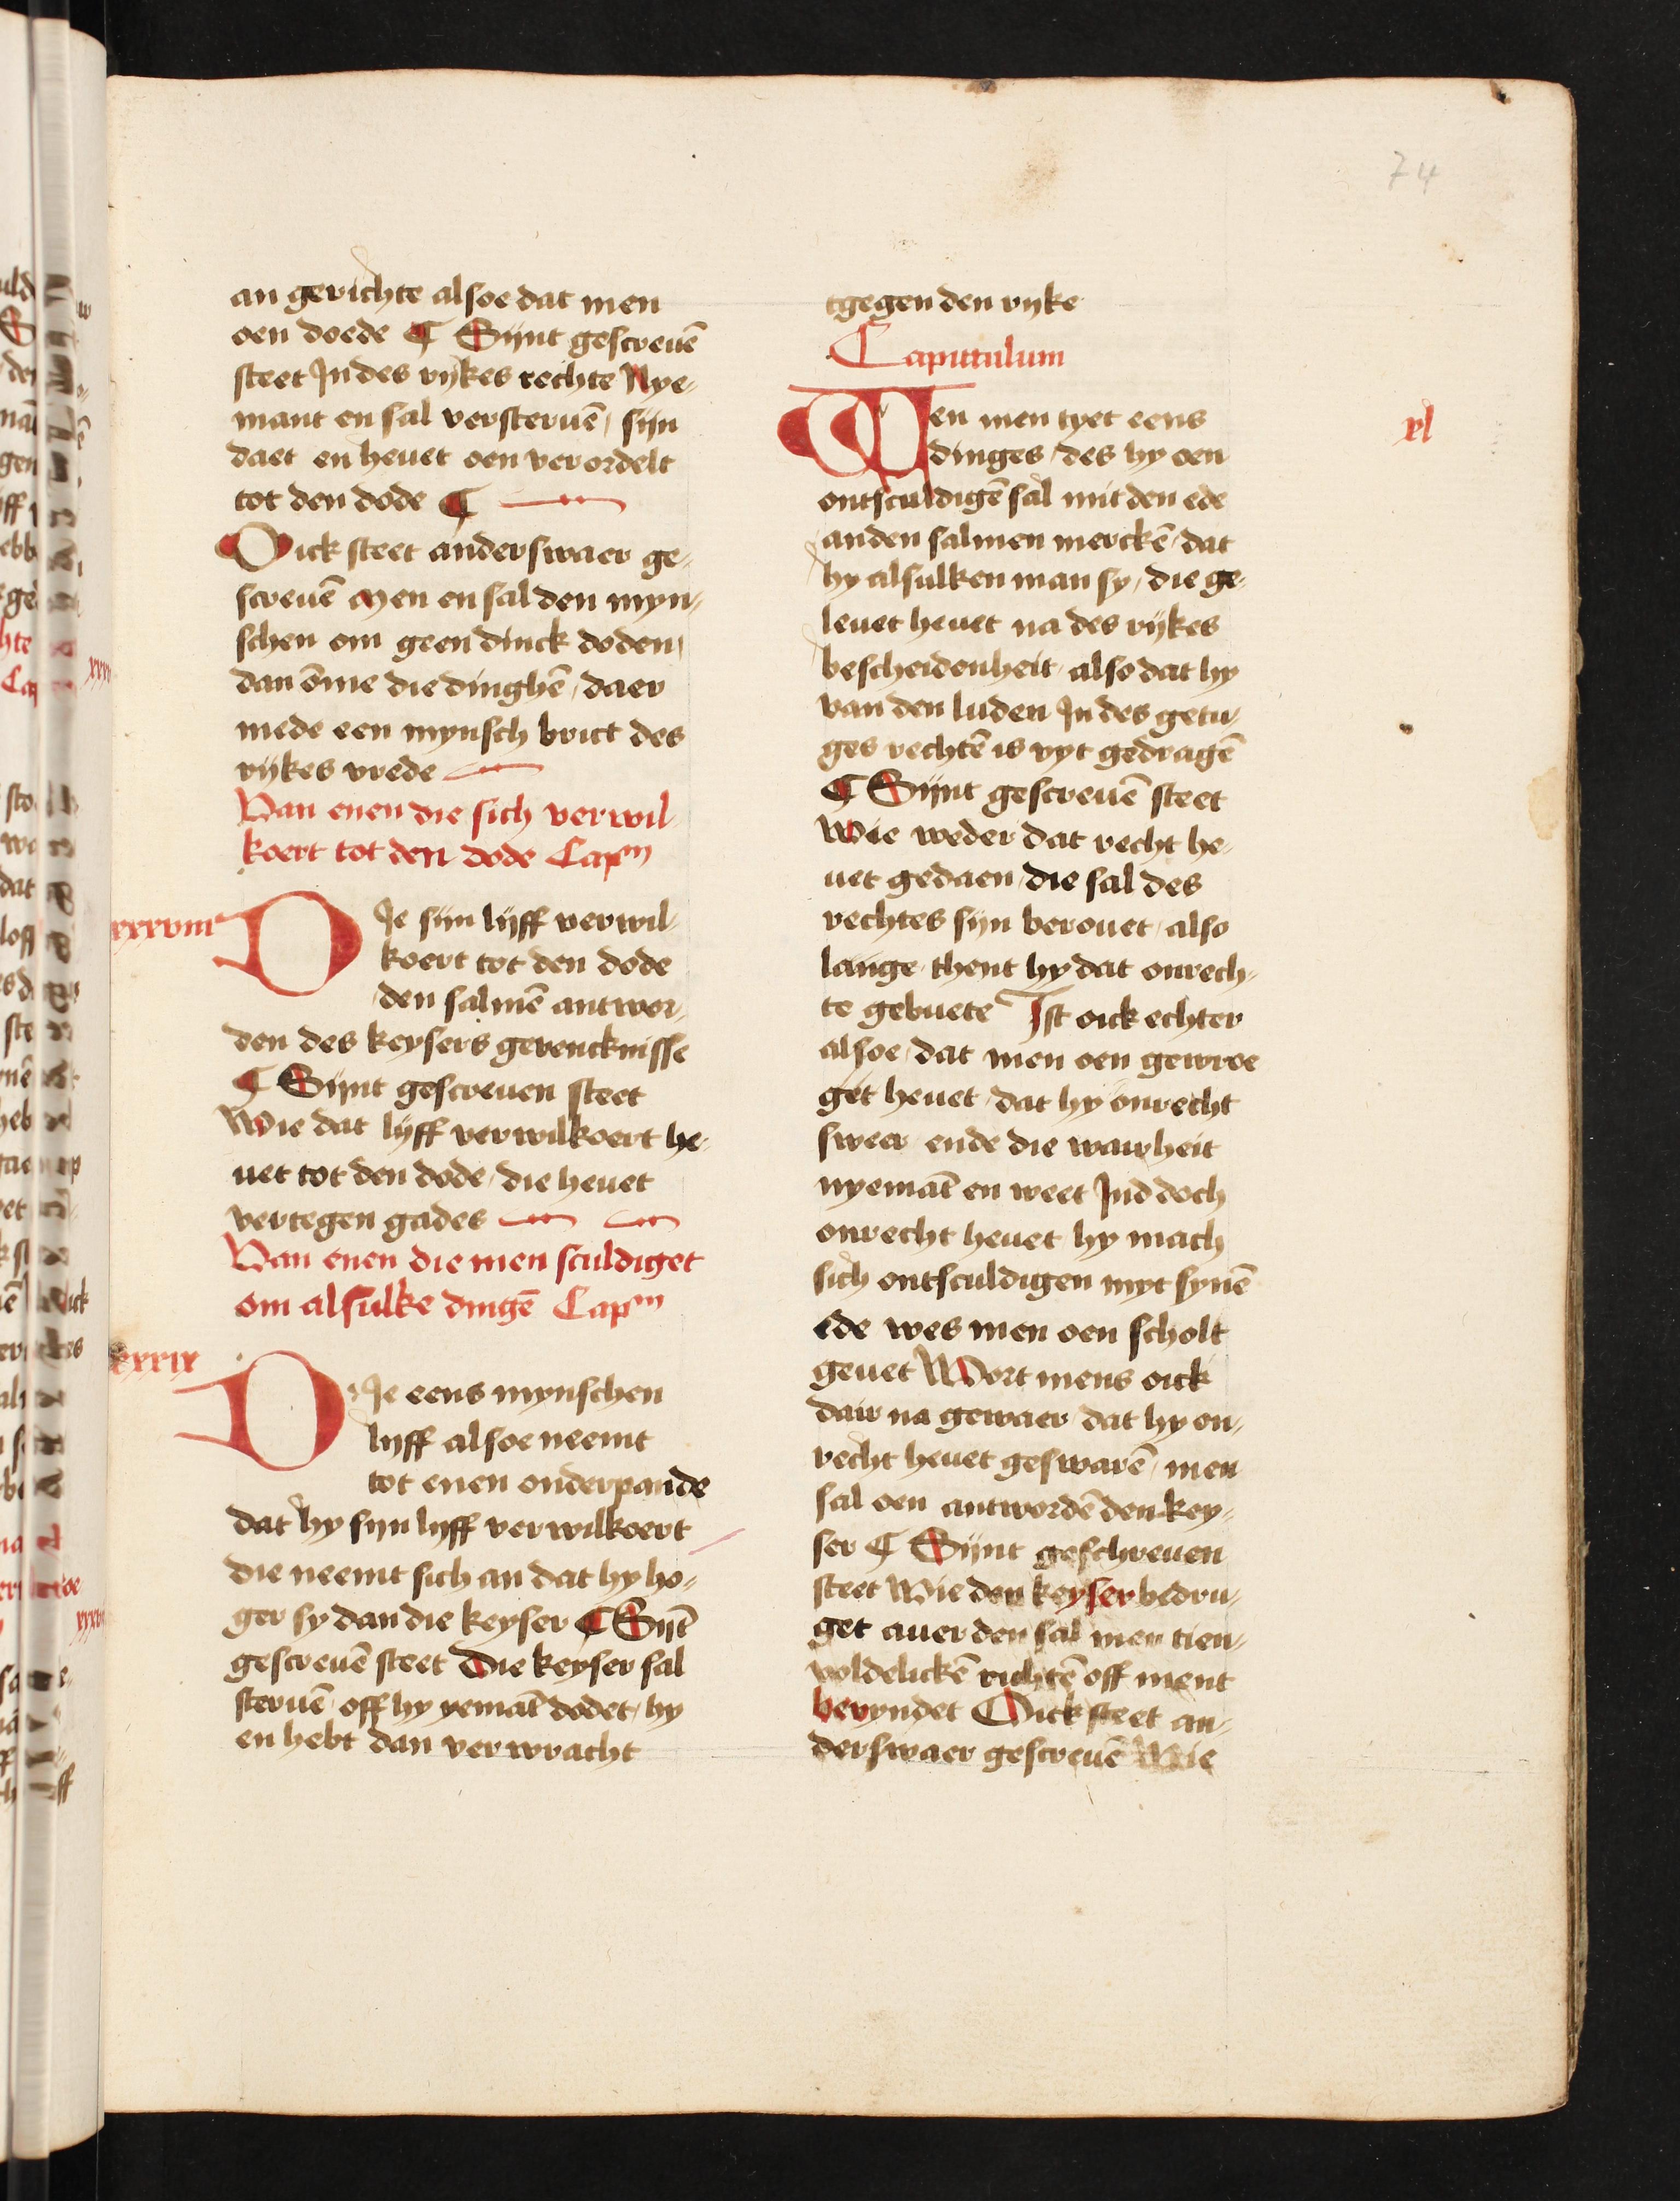 74
an gerichte alsoe dat men
oen doede ¶ Sijnt gescreuē
steet In des rijkes rechte Nye-
mant en sal versteruē / sijn
daet en heuet oen verordelt
tot den dode ¶
Oick steet anderswaer ge-
screuē Men en sal den myn-
schen om geen dinck doden /
dan ōme die dinghē / daer
mede een mynsch brict des
rijkes vrede
Van enen die sich verwil
koert tot den dode Capm
xxxviii
DIe sijn lijff verwil-
koert tot den dode
den salmē antwor-
den des keysers geuencknisse
¶ Sijnt gescreuen steet
Wie dat lijff verwilkoert he-
uet tot den dode / die heuet
vertegen gades
Van enen die men sculdiget
om alsulke dingē Capm
xxxix
DIe eens mynschen
lijff alsoe neemt
tot enen onderpande
dat hy sijn lijff verwilkoert
die neemt sich an dat hy ho-
ger sy dan die keyser ¶ Sijt̄
gescreuē steet Die keyser sal
steruē / off hy yemāt dodet / hy
en hebt dan verwracht
tgegen den rijke
Capittulum
xl
Wen men tyet eens
dinges / des hy oen
ontsculdigē sal mit den ede
anden salmen merckē / dat
hy alsulken man sy / die ge-
leuet heuet na des rijkes
bescheidenheit / also dat hy
van den luden In des getu-
ges rechtē is vyt gedragē
¶ Sijnt gescreuē steet
Wie weder dat recht he-
uet gedaen / die sal des
rechtes sijn berouet / also
lange / thent hy dat onrech-
te gebuete Ist oick echter
alsoe / dat men oen gewroe
get heuet / dat hy onrecht
sweer ende die wairheit
nyemāt en weet Ind doch
onrecht heuet hy mach
sich ontsculdigen myt synē
ede wes men oen scholt
geuet Wort mens oick
dair na gewaer dat hy on-
recht heuet geswarē / men
sal oen antwordē den key-
ser ¶ Sijnt geschreuen
steet Wie den keyser bedru-
get auer den sal men tien-
voldelickē richtē off ment
bevyndet Oick steet an-
derswaer gescreuē Wie